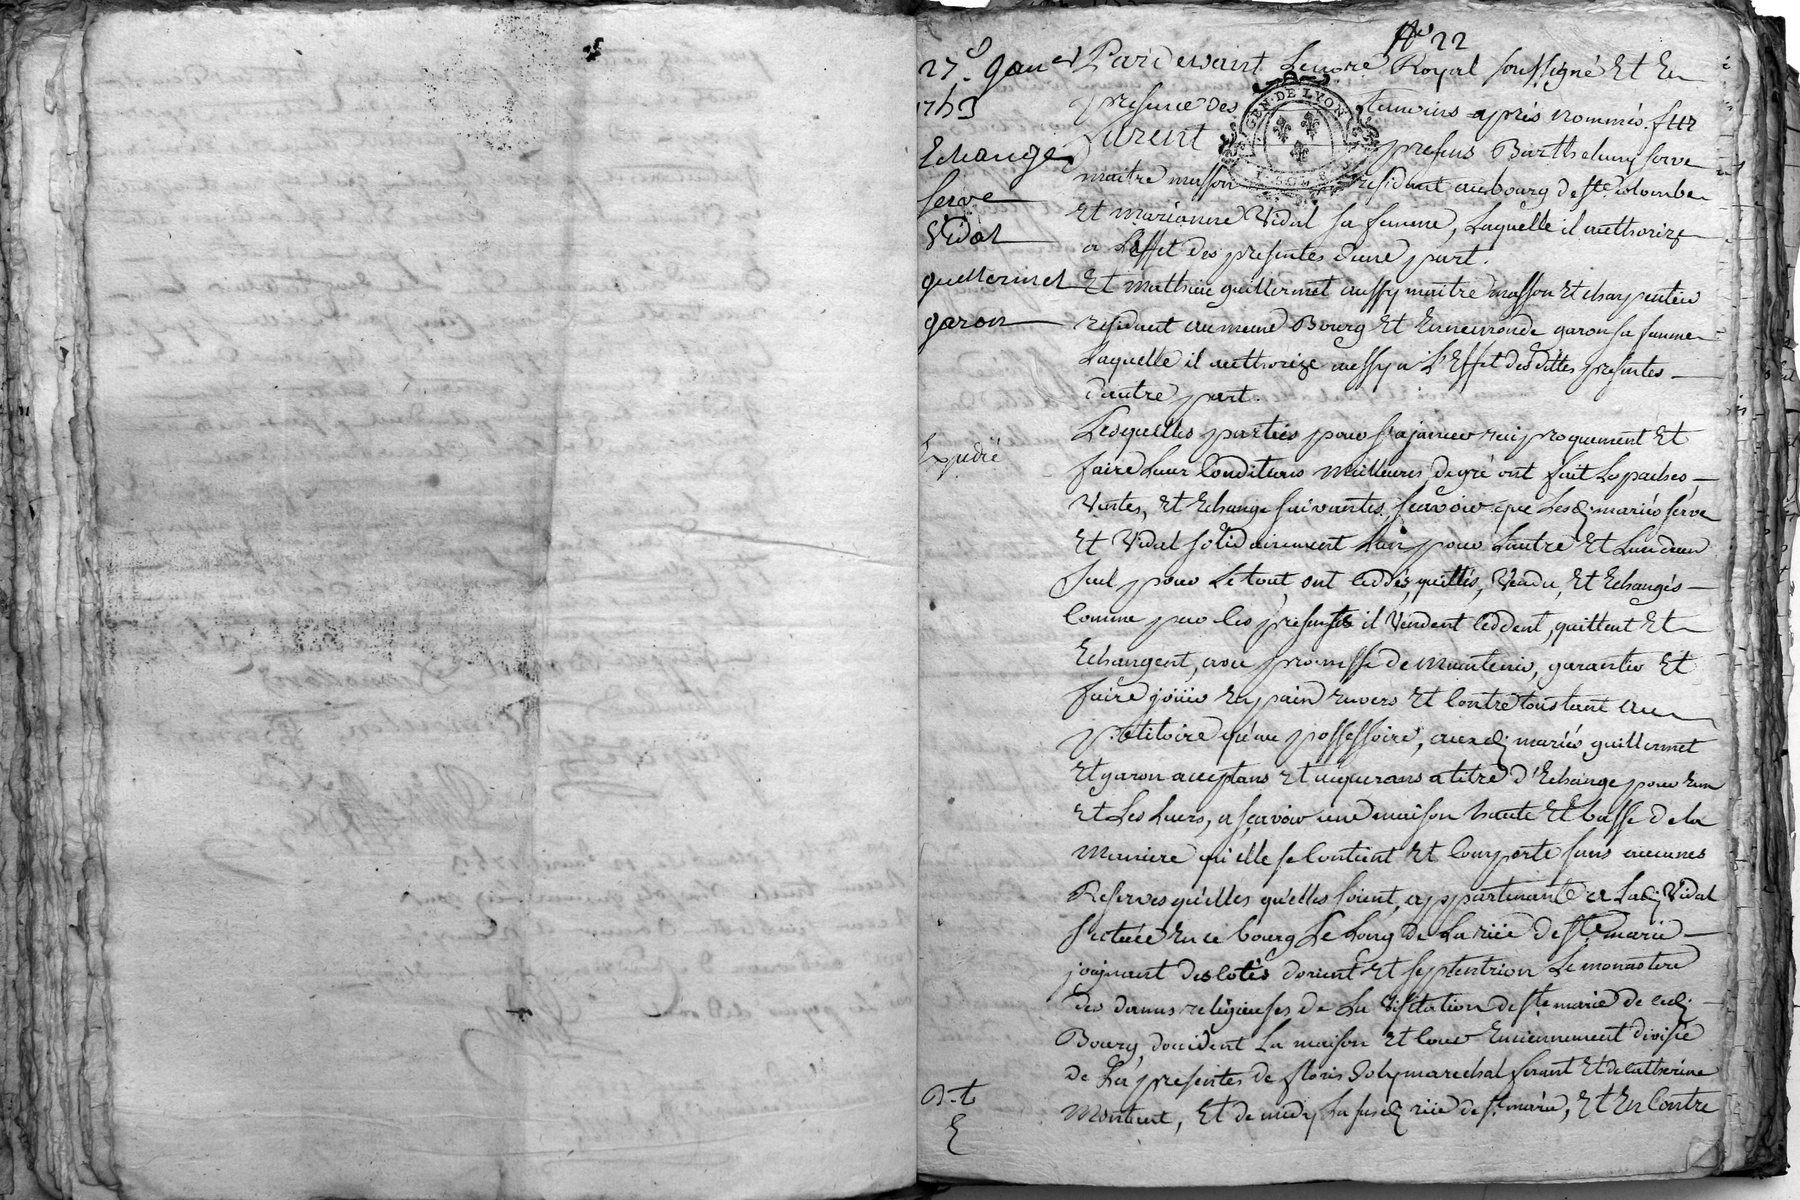 No 22
27e Janer
1763
Echange
Serve
Vidal
guillermet
garon
Expedié
Pardevant Lenore Royal soussigné Et En
presence des temoins après nommés. fut
GEN. DE LYON
furent presens Barthelemy Serve
maitre masson residant au bourg de Ste Colombe
Et marianne Vidal sa femme, Laquelle il authorize
a L'effet des presentes d'une part.
Et mathieu guillermet aussy maitre masson Et charpentier
residant au meme Bourg Et Ennemonde garon sa femme
Laquelle il authorize aussy a L'Effet desdittes presentes
d'autre part.
Lesquelles parties pour s'ajancer reciproquement Et
faire Leur Conditions meilleures, de gré ont fait Les paches
Ventes, Et Echange suivantes, sçavoir que Lesd. mariés Serve
Et Vidal solidairement L'un pour L'autre Et L'un deux
seul pour Le tout, ont ceddés, quittés, Vendu, Et Echangés
Comme par les presentes il Vendent ceddent, quittent Et
Echangent, avec promesse de maintenir, garantir Et
faire joüir En paix Envers Et Contre tous tant au
petitoire qu'au possessoire, auxd. mariés guillermet
Et garon acceptans Et acquerans a titre d'Echange pour Eux
Et Les Leurs, a sçavoir une maison haute Et basse de la
maniere qu'elle se Contient Et Comporte sans aucunes
Reserves quelles qu'elles soient, appartenante a Lad. Vidal
scituée En ce bourg Le Long de La rüe de Ste marie
joignant des Cotés d'orient Et septentrion Le monastere
des dames religieuses de La Visitation de Ste marie de ced.
Bourg, d'occident La maison Et Cour Enciennement divisée
de La presentes de floris Joly marechal ferant Et de Catherine
Montent, Et de midy La susd. rüe de Ste marie, Et En Contre